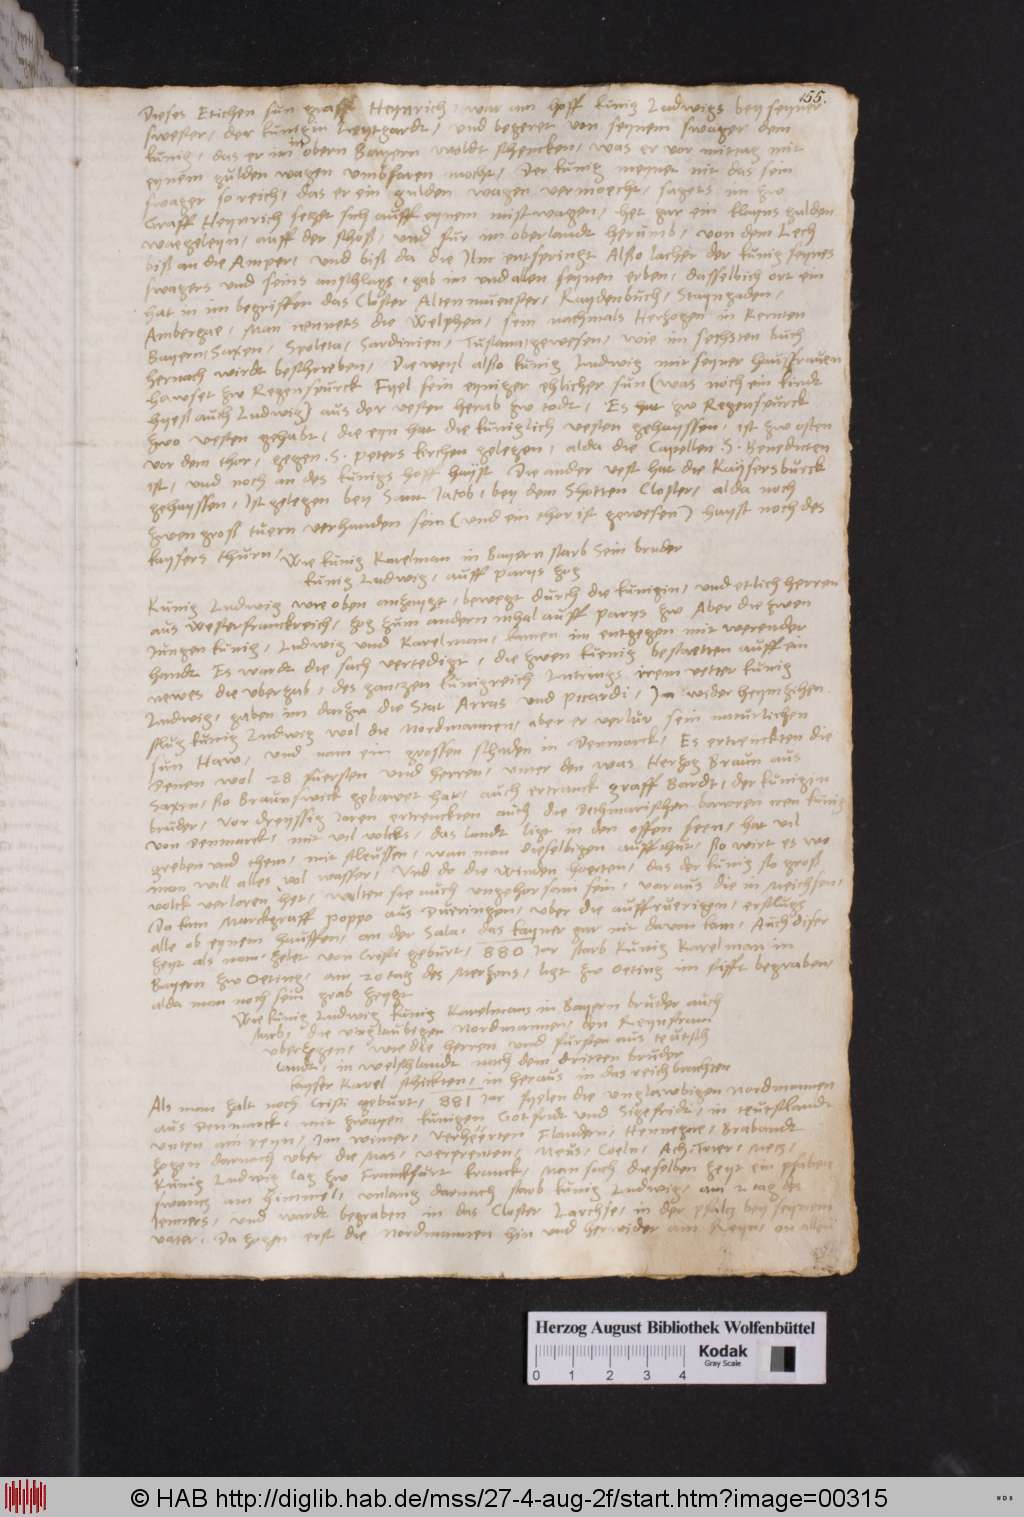 155.
Dieses Etichen sün graff Heynrich, war am hoff künig Ludwigs bey seyner
swester, der künigin Leytgardt, und begeret von seynem swager dem
künig, das er im in obern Bayern woldt schencken, was er vor mittag mit
eynem gulden wagen umbfaren mocht, Der künig meynet nit das sein
swager so reich, das er ein gulden wagen vermoecht, sagets im zw
Graff Heynrich setzet sich auff eynem mistwagen, het gar ein klayns gulden
waegeleyn, auff der schoß, und für im oberlandt herümb, von dem Lech
biß an die Amper, und biß da die Ilm entspringt Also lachet der künig seynes
swagers und seins anschlags, gab im und alen seynen erben, dasselbich ort ein
hat in im begriffen das Closter Altenmuenster, Raydenbuch, Stayngaden,
Ambergae, Man nennets die Welphen, sein nachmals Hertzogen in Kernten
Bayern, Saxen, Spoleta, Sardinien, Tuscan, gewesen, wie im sechsten buch
hernach wirdt beschrieben, Dieweyl also künig Ludwig mit seyner hausfrauen
hawset zw Regenspurck Fyel sein eyniger ehlicher sün (was noch ein kindt
hyeß auch Ludwig) aus der vesten herab zw todt, Es hat zw Regenspurck
zwo vesten gehabt, die eyn hat die küniglich vesten gehayssen, ist zw osten
vor dem thor, gegen S. Peters kirchen gelegen, alda die Capellen S. Benedicten
ist, und noch an des künigs hoff hayst Die ander vest hat die Kaysersburck
gehayssen, Ist gelegen bey Sant Jacob, bey dem Shotten Closter, alda noch
zwen groß tuern verhanden sein (und ein thor ist gewesen) hayst noch des
kaysers thurn, Wie künig Karelman in Bayern starb sein bruder
künig Ludwig, auff Parys zog
Künig Ludwig wie oben anzeyget, bewegt durch die künigin, und etlich herren
aus Westerfranckreich, zog zum andern mhal auff Parys zw Aber die zwen
Jungen künig, Ludwig und Karelman, kamen im entgegen mit werender
handt Es wardt die sach vertedigt, die zwen kuenig bestaetten auff ein
newes die ubergab, des gantzen künigreich Lutrings irem vetter künig
Ludwig, gaben im darzw die Stat Arras und Picardi, Im wider heymzihen
slug künig Ludwig wol die Nordmannen, aber er verlur sein naturlichen
sün Haw, und nam ein grossen schaden in Denmarck, Es ertrenckten die
Denen wol 28 fuersten und herren, unter den was Hertzog Braun aus
Saxen, so Braunswick gebawet hat, auch ertranck graff Bardt, der künigin
bruder, vor dreyssig Jaren ertrenckten auch die Dethmarischen bawren iren künig
von Denmarck, mit vil volcks, das landt ligt in den offen seen, hat vil
greben und them, mit sleussen, wan man dieselbigen auff thut, so wirt es wo
man will alles vol wasser, Und do die Winden hoerten, das der künig so groß
volck verloren het, wolten sie auch ungehorsam sein, voraus die in Meichsen,
Do kam Marckgraff Poppo aus Dueringen, uber die auffruerigen, erslugs
alle ob eynem hauffen, an der Sala, das kayner gar nit davon kam, Auch diser
zeyt als man zelet von Cristi geburt, 880 Jar starb künig Karelman in
Bayern zw Oeting, am 20 tag des Mertzens, ligt zw Oeting im stifft begraben,
alda man noch sein grab zeygt
Wie künig Ludwig künig Karelmans in Bayern bruder auch
starb, die unglaubigen Nordmannen, den Reynstram
uberzogen, wie die herren und fürsten aus teutsch
landt, in welschlandt nach dem dritten bruder
kayser Karel schickten, in heraus in das reich brachten
Als man zalt nach Cristi geburt, 881 Jar fyelen die unglawbigen Nordmannen
aus Denmarck, mit zwayen künigen Gotfridt und Sigefridt, in teutslandt
unten am reyn, Im winter, verheerten Flandern, Hennegae, Brabandt
zogen darnach uber die Mas, verprenten, Neus, Coeln, Ach, Trier, Metz,
Künig Ludwig lag zw Franckfürt kranck, Man sach dieselben zeyt ein pfaben
swantz am himmel, unlang darnach starb künig Ludwig, am 2 tag des
Jenners, und wardt begraben in das Closter Larchse, in der pfaltz bey seynem
vater, Da zogen erst die Nordmannen hin und herwider am Reyn, an allen
Herzog August Bibliothek Wolfenbüttel
Kodak
Gray Scale
0 1 2 3 4
© HAB http://diglib.hab.de/mss/27-4-aug-2f/start.htm?image=00315